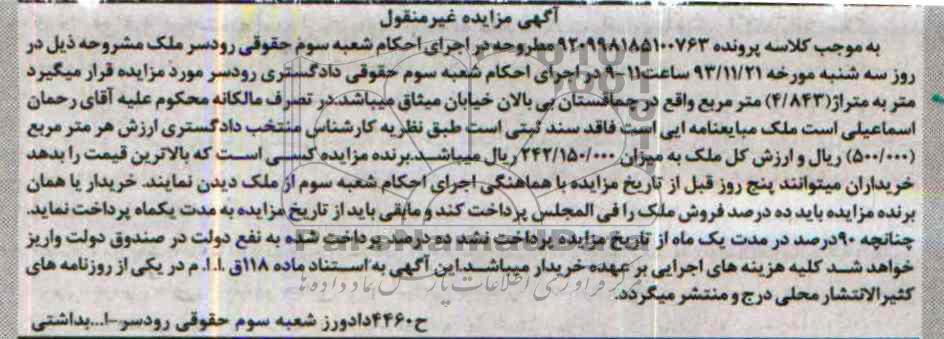 آگهی مزایده غیرمنقول
به موجب کلاسه پرونده ۹۲۰۹۹۸۱۸۵۱۰۰۷۶۳ مطروحه در اجرای احکام شعبه سوم حقوقی رودسر ملک مشروحه ذیل در
روز سه شنبه مورخه ۹۳/۱۱/۲۱ ساعت ۱۱-۹ در اجرای احکام شعبه سوم حقوقی دادگستری رودسر مورد مزایده قرار میگیرد
متر به متراژ (۴/۸۴۳) متر مربع واقع در چماقستان بی بالان خیابان میثاق میباشد.در تصرف مالکانه محکوم علیه آقای رحمان
اسماعیلی است ملک مبایعنامه ایی است فاقد سند ثبتی است طبق نظریه کارشناس منتخب دادگستری ارزش هر متر مربع
(۵۰۰/۰۰۰) ریال و ارزش کل ملک به میزان ۲۴۲/۱۵۰/۰۰۰ ریال میباشد.برنده مزایده کسی است که بالاترین قیمت را بدهد
خریداران میتوانند پنج روز قبل از تاریخ مزایده با هماهنگی اجرای احکام شعبه سوم از ملک دیدن نمایند. خریدار یا همان
برنده مزایده باید ده درصد فروش ملک را فی المجلس پرداخت کند و مابقی باید از تاریخ مزایده به مدت یکماه پرداخت نماید.
چنانچه ۹۰درصد در مدت یک ماه از تاریخ مزایده پرداخت نشد ده درصد پرداخت شده به نفع دولت در صندوق دولت واریز
خواهد شد کلیه هزینه های اجرایی بر عهده خریدار میباشد.این آگهی به استناد ماده ۱۱۸ق .ا.ا. م در یکی از روزنامه های
کثیرالانتشار محلی درج و منتشر میگردد.
ح۴۴۶۰دادورز شعبه سوم حقوقی رودسر-ا...بداشتی